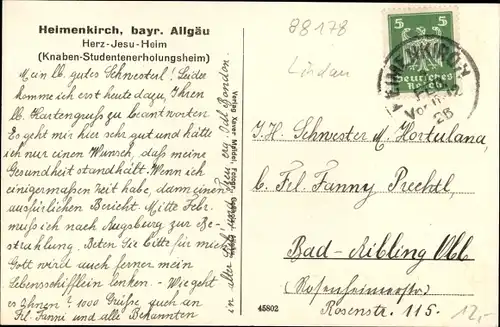 Heimenkirch, bayr. Allgäu
Herz-Jesu-Heim
(Knaben-Studentenerholungsheim)
Mein lb. gutes Schwesterl! Leider
komme ich erst heute dazu, Ihren
lb. Kartengruß zu beantworten.
Es geht mir hier sehr gut und hätte
ich nur einen Wunsch, daß meine
Gesundheit standhält. Wenn ich
einigermaßen Zeit habe, dann eine
ausfürlichen Bericht. Mitte Febr.
muß ich nach Augsburg zur Be-
strahlung. Beten Sie bitte für mich
Gott wird auch ferner mein
Lebensschifflein lenken. - Wie geht
es Ihnen? 1000 Grüße, auch an
Frl. Fanni und alle Bekannten
in alter
Verlag Xaver
45802
88178
Lindau
5 5
Deutsches
Reich
HEIMENKIRCH
Vorm.
26
I. H. Schwester M. Hortulana,
b. Frl. Fanny Prechtl,
Bad-Aibling Obb.
(Rosenheimerstr.)
Rosenstr. 115.
12,-